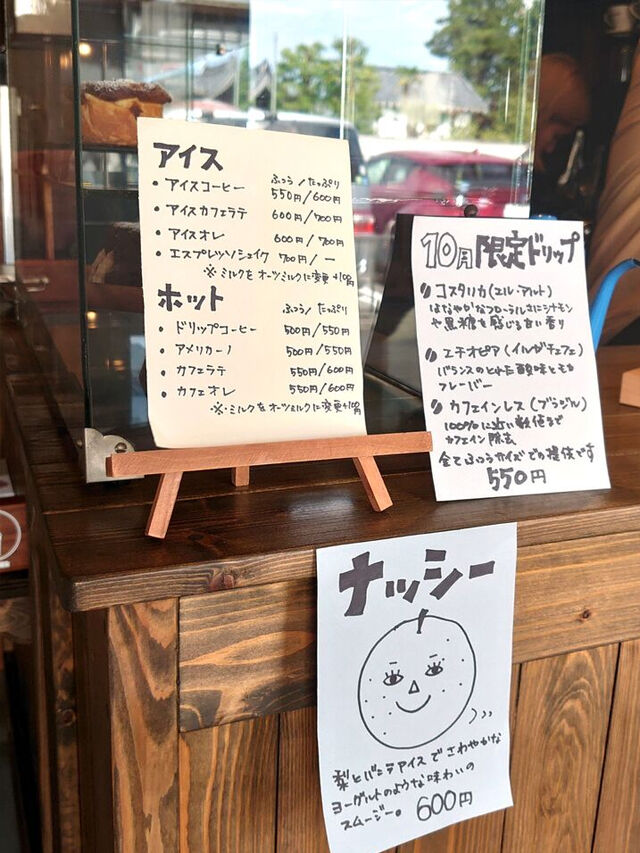 アイス
ふつう/たっぷり
・アイスコーヒー 550円/600円
・アイスカフェラテ 600円/700円
・アイスオレ 600円/700円
・エスプレッソシェイク 700円/ー
※ミルクをオーツミルクに変更+100円
ホット
ふつう/たっぷり
・ドリップコーヒー 500円/550円
・アメリカーノ 500円/550円
・カフェラテ 550円/600円
・カフェオレ 550円/600円
※ミルクをオーツミルクに変更+100円
10月限定ドリップ
コスタリカ(エル・アルト)
はなやかなフローラルさにシナモン
や黒糖を感じる甘い香り
エチオピア(イルガチェフェ)
バランスのとれた酸味とももの
フレーバー
カフェインレス(ブラジル)
100%に近い数値まで
カフェイン除去
全てふつうサイズでの提供です
550円
ナッシー
梨とバニラアイスでさわやかな
ヨーグルトのような味わいの
スムージー。600円